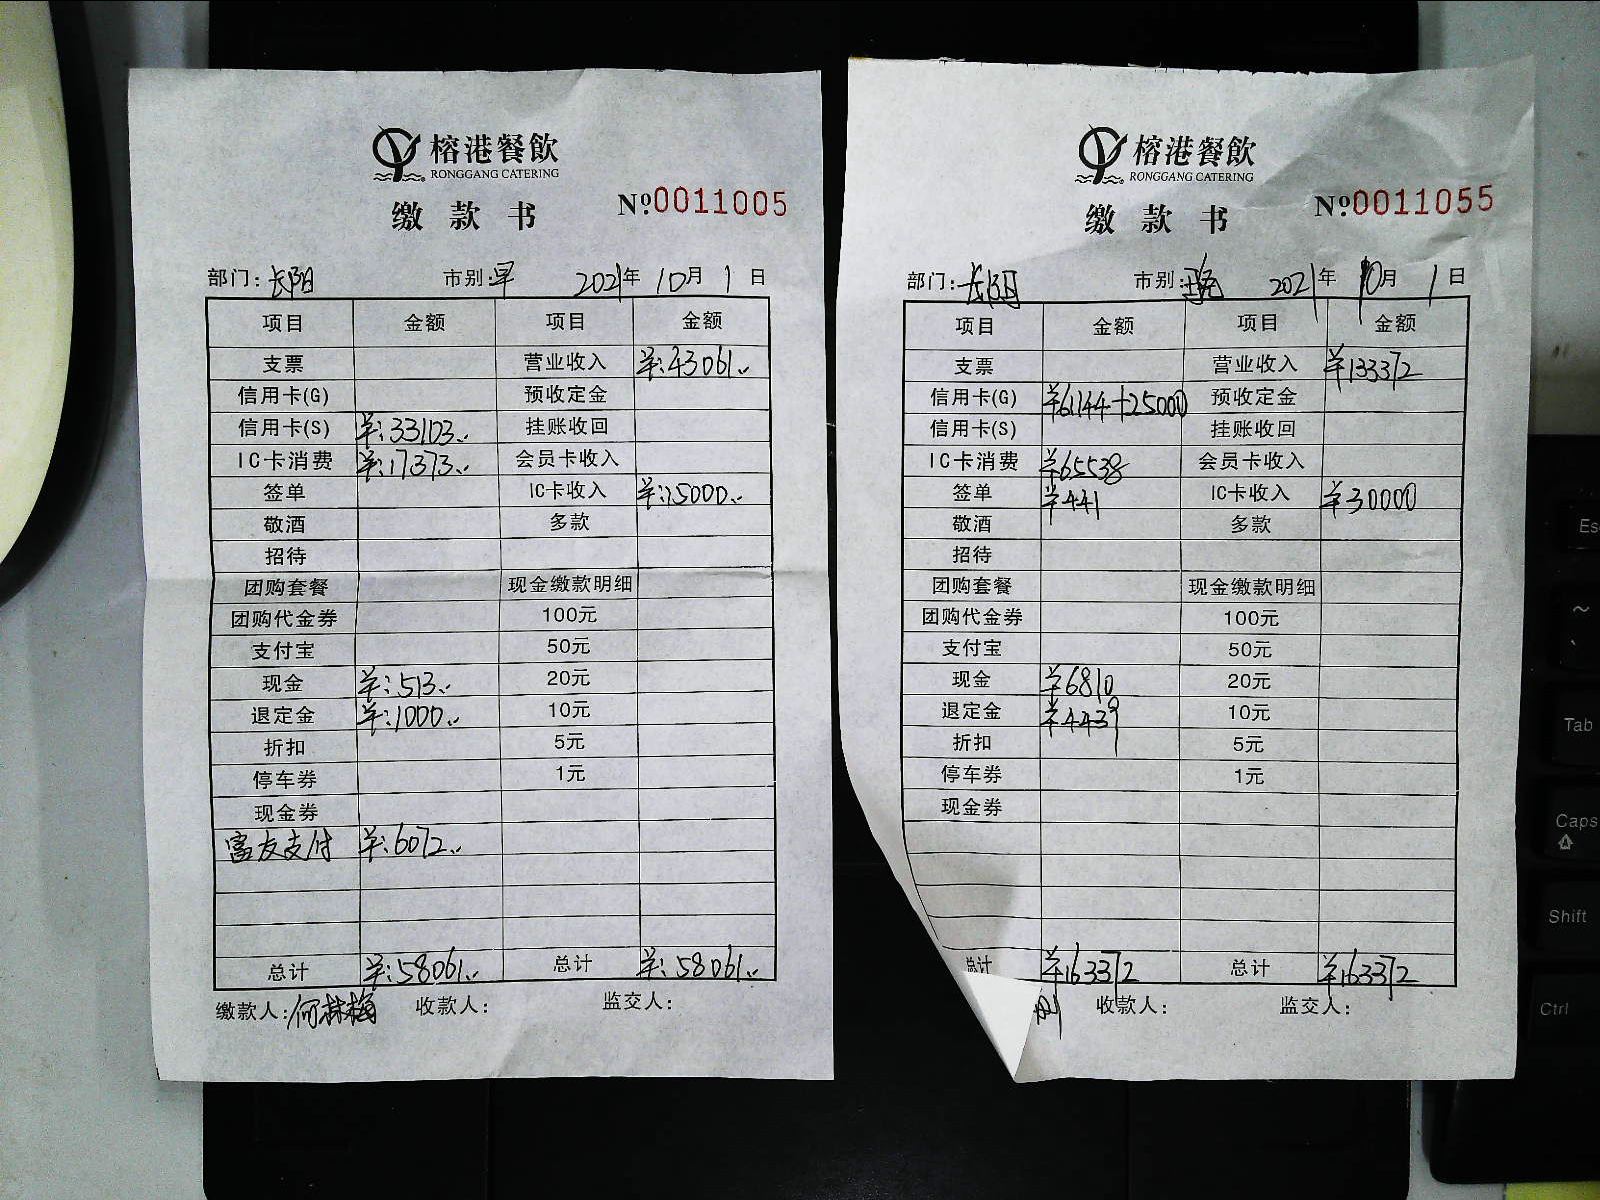 榕港餐飲
RONGGANG CATERING
缴款书
№0011005
部门:长阳 市别:早 2021年10月1日
项目 金额 项目 金额
支票 营业收入 ¥:43061..
信用卡(G) 预收定金
信用卡(S) ¥:33103.. 挂账收回
IC卡消费 ¥:17373.. 会员卡收入
签单 IC卡收入 ¥:15000..
敬酒 多款
招待
团购套餐 现金缴款明细
团购代金券 100元
支付宝 50元
现金 ¥:513.. 20元
退定金 ¥:1000.. 10元
折扣 5元
停车券 1元
现金券
富友支付 ¥:6072..
总计 ¥:58061.. 总计 ¥:58061..
缴款人:何林梅 收款人: 监交人:
榕港餐飲
RONGGANG CATERING
缴款书
№0011055
部门:长阳 市别: 2021年10月1日
项目 金额 项目 金额
支票 营业收入 ¥133372
信用卡(G) ¥61144+25000 预收定金
信用卡(S) 挂账收回
IC卡消费 ¥65538 会员卡收入
签单 ¥441 IC卡收入 ¥30000
敬酒 多款
招待
团购套餐 现金缴款明细
团购代金券 100元
支付宝 50元
现金 ¥6810 20元
退定金 ¥4439 10元
折扣 5元
停车券 1元
现金券
总计 ¥163372 总计 ¥163372
收款人: 监交人:
Esc
~
Tab
Caps
Shift
Ctrl